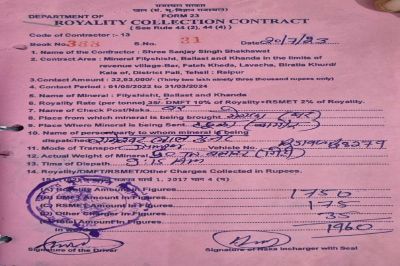 राजस्थान सरकार
खान (भू-विज्ञान राजस्थान)
DEPARTMENT OF FORM 23
ROYALITY COLLECTION CONTRACT
( See Rule 44 (2), 44 (4) )
Code of Contractor :- 13
Book No. 388 S.No. 31 Date 20/7/23
1. Name of the Contractor : Shree Sanjay Singh Shekhawat
2. Contract Area : Mineral Fliyshisht, Ballast and Khanda in the limits of
revenue village-Bar, Fateh Kheda, Lavecha, Biratia Khurd
Kala of, District Pali, Tehsil : Raipur
3. Contact Amount : 32,93,000/- (Thirty two lakh ninety three thousand rupees only)
4. Contact Period : 01/05/2022 to 31/03/2024
5. Name of Mineral : Fliyshisht, Ballast and Khanda
6. Royality Rate (per tonne) 35/- DMFT 10% of Royality+RSMET 2% of Royality.
7. Name of Check Post/Naka
8. Place from which mineral is being brought.
9. Place Where Mineral is Being Sent.
10. Name of person/party to whom mineral is being
dispatched
11. Mode of Transport Vehicle No.
12. Actual Weight of Mineral
13. Time of Dispatch 9:15 AM
14. Royality/DMFT/RSMET/Other Charges Collected in Rupees.
(A) Royality Amount In Figures 1750
(B) DMFT Amount In Figures 175
(C) RSMET Amount In Figures 35
(D) Other Charger In Figures
Amount In Figures 1960
Signature of the Driver Signature of Naka Incharger with Seal